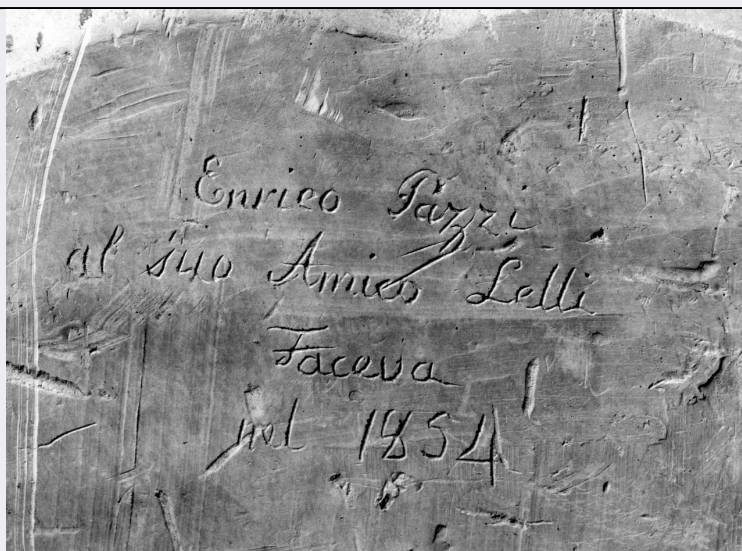 Enrico Pazzi
al suo Amico Lelli
Faceva
nel 1854